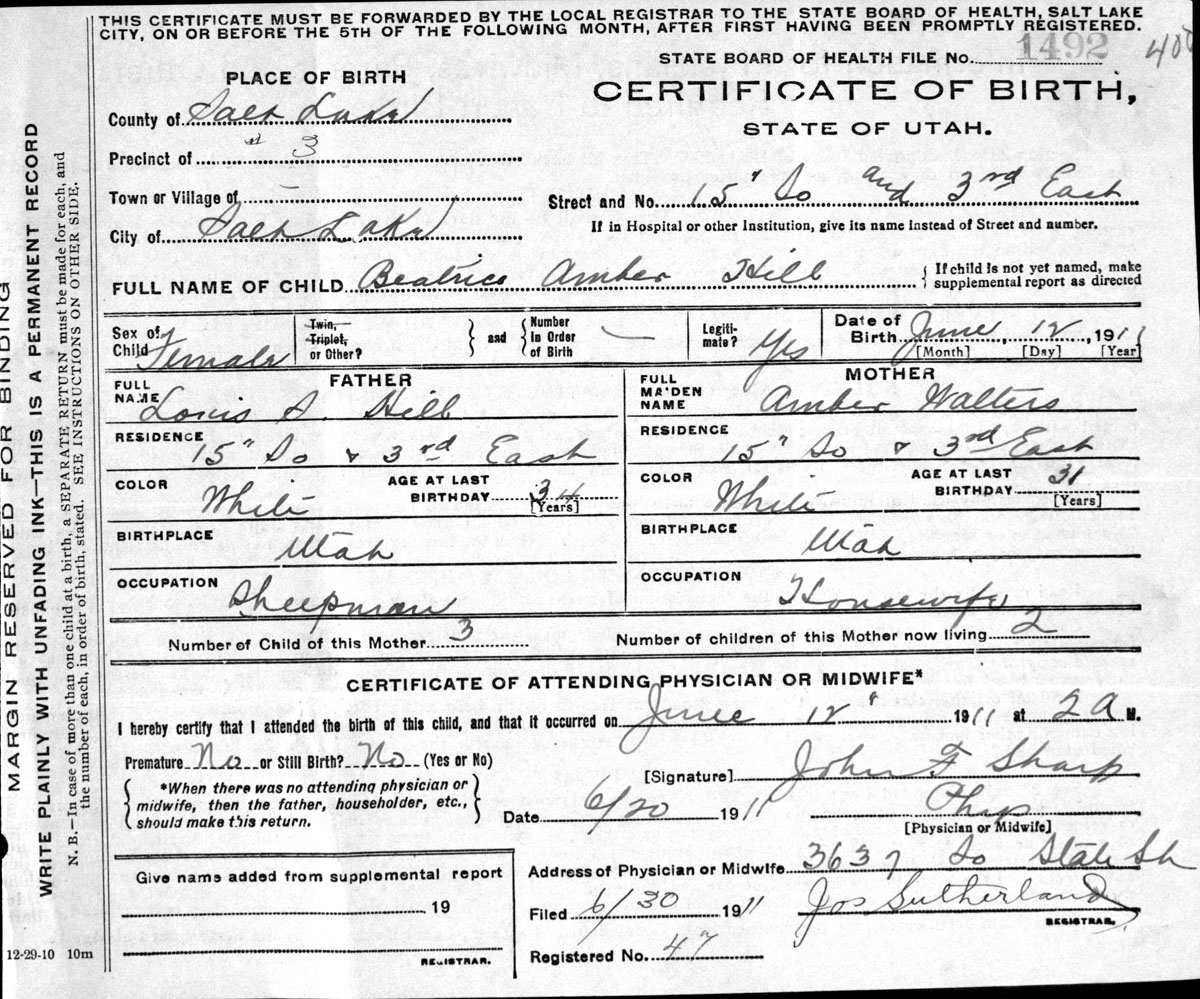 THIS CERTIFICATE MUST BE FORWARDED BY THE LOCAL REGISTRAR TO THE STATE BOARD OF HEALTH, SALT LAKE
CITY, ON OR BEFORE THE 5TH OF THE FOLLOWING MONTH, AFTER FIRST HAVING BEEN PROMPTLY REGISTERED.
MARGIN RESERVED FOR BINDING
WRITE PLAINLY WITH UNFADING INK—THIS IS A PERMANENT RECORD
N. B.—In case of more than one child at a birth, a SEPARATE RETURN must be made for each, and
the number of each, in order of birth, stated. SEE INSTRUCTIONS ON OTHER SIDE.
STATE BOARD OF HEALTH FILE No. 1492
CERTIFICATE OF BIRTH,
STATE OF UTAH.
PLACE OF BIRTH
County of Salt Lake
Precinct of # 3
Town or Village of —
City of Salt Lake
Street and No. 15" So and 3rd East
If in Hospital or other Institution, give its name instead of Street and number.
FULL NAME OF CHILD Beatrice Amber Hill
{ If child is not yet named, make
supplemental report as directed
Sex of Child Female
Twin, Triplet, or Other? } and { Number In Order of Birth —
Legitimate? Yes
Date of Birth June, 12, 1911
[Month] [Day] [Year]
FATHER
FULL NAME Louis A. Hill
RESIDENCE 15" So & 3rd East
COLOR White
AGE AT LAST BIRTHDAY 34 [Years]
BIRTHPLACE Utah
OCCUPATION Sheepman
MOTHER
FULL MAIDEN NAME Amber Walters
RESIDENCE 15" So & 3rd East
COLOR White
AGE AT LAST BIRTHDAY 31 [Years]
BIRTHPLACE Utah
OCCUPATION Housewife
Number of Child of this Mother 3
Number of children of this Mother now living 2
CERTIFICATE OF ATTENDING PHYSICIAN OR MIDWIFE*
I hereby certify that I attended the birth of this child, and that it occurred on June 12" 1911 at 2 A M.
Premature No or Still Birth? No (Yes or No)
{ *When there was no attending physician or
midwife, then the father, householder, etc.,
should make this return. }
[Signature] John F Sharp
Date 6/20 1911
Phys
[Physician or Midwife]
Address of Physician or Midwife 3637 So State St
Filed 6/30 1911 Jos Sutherland
REGISTRAR.
Registered No. 47
Give name added from supplemental report
19
REGISTRAR.
12-29-10 10m